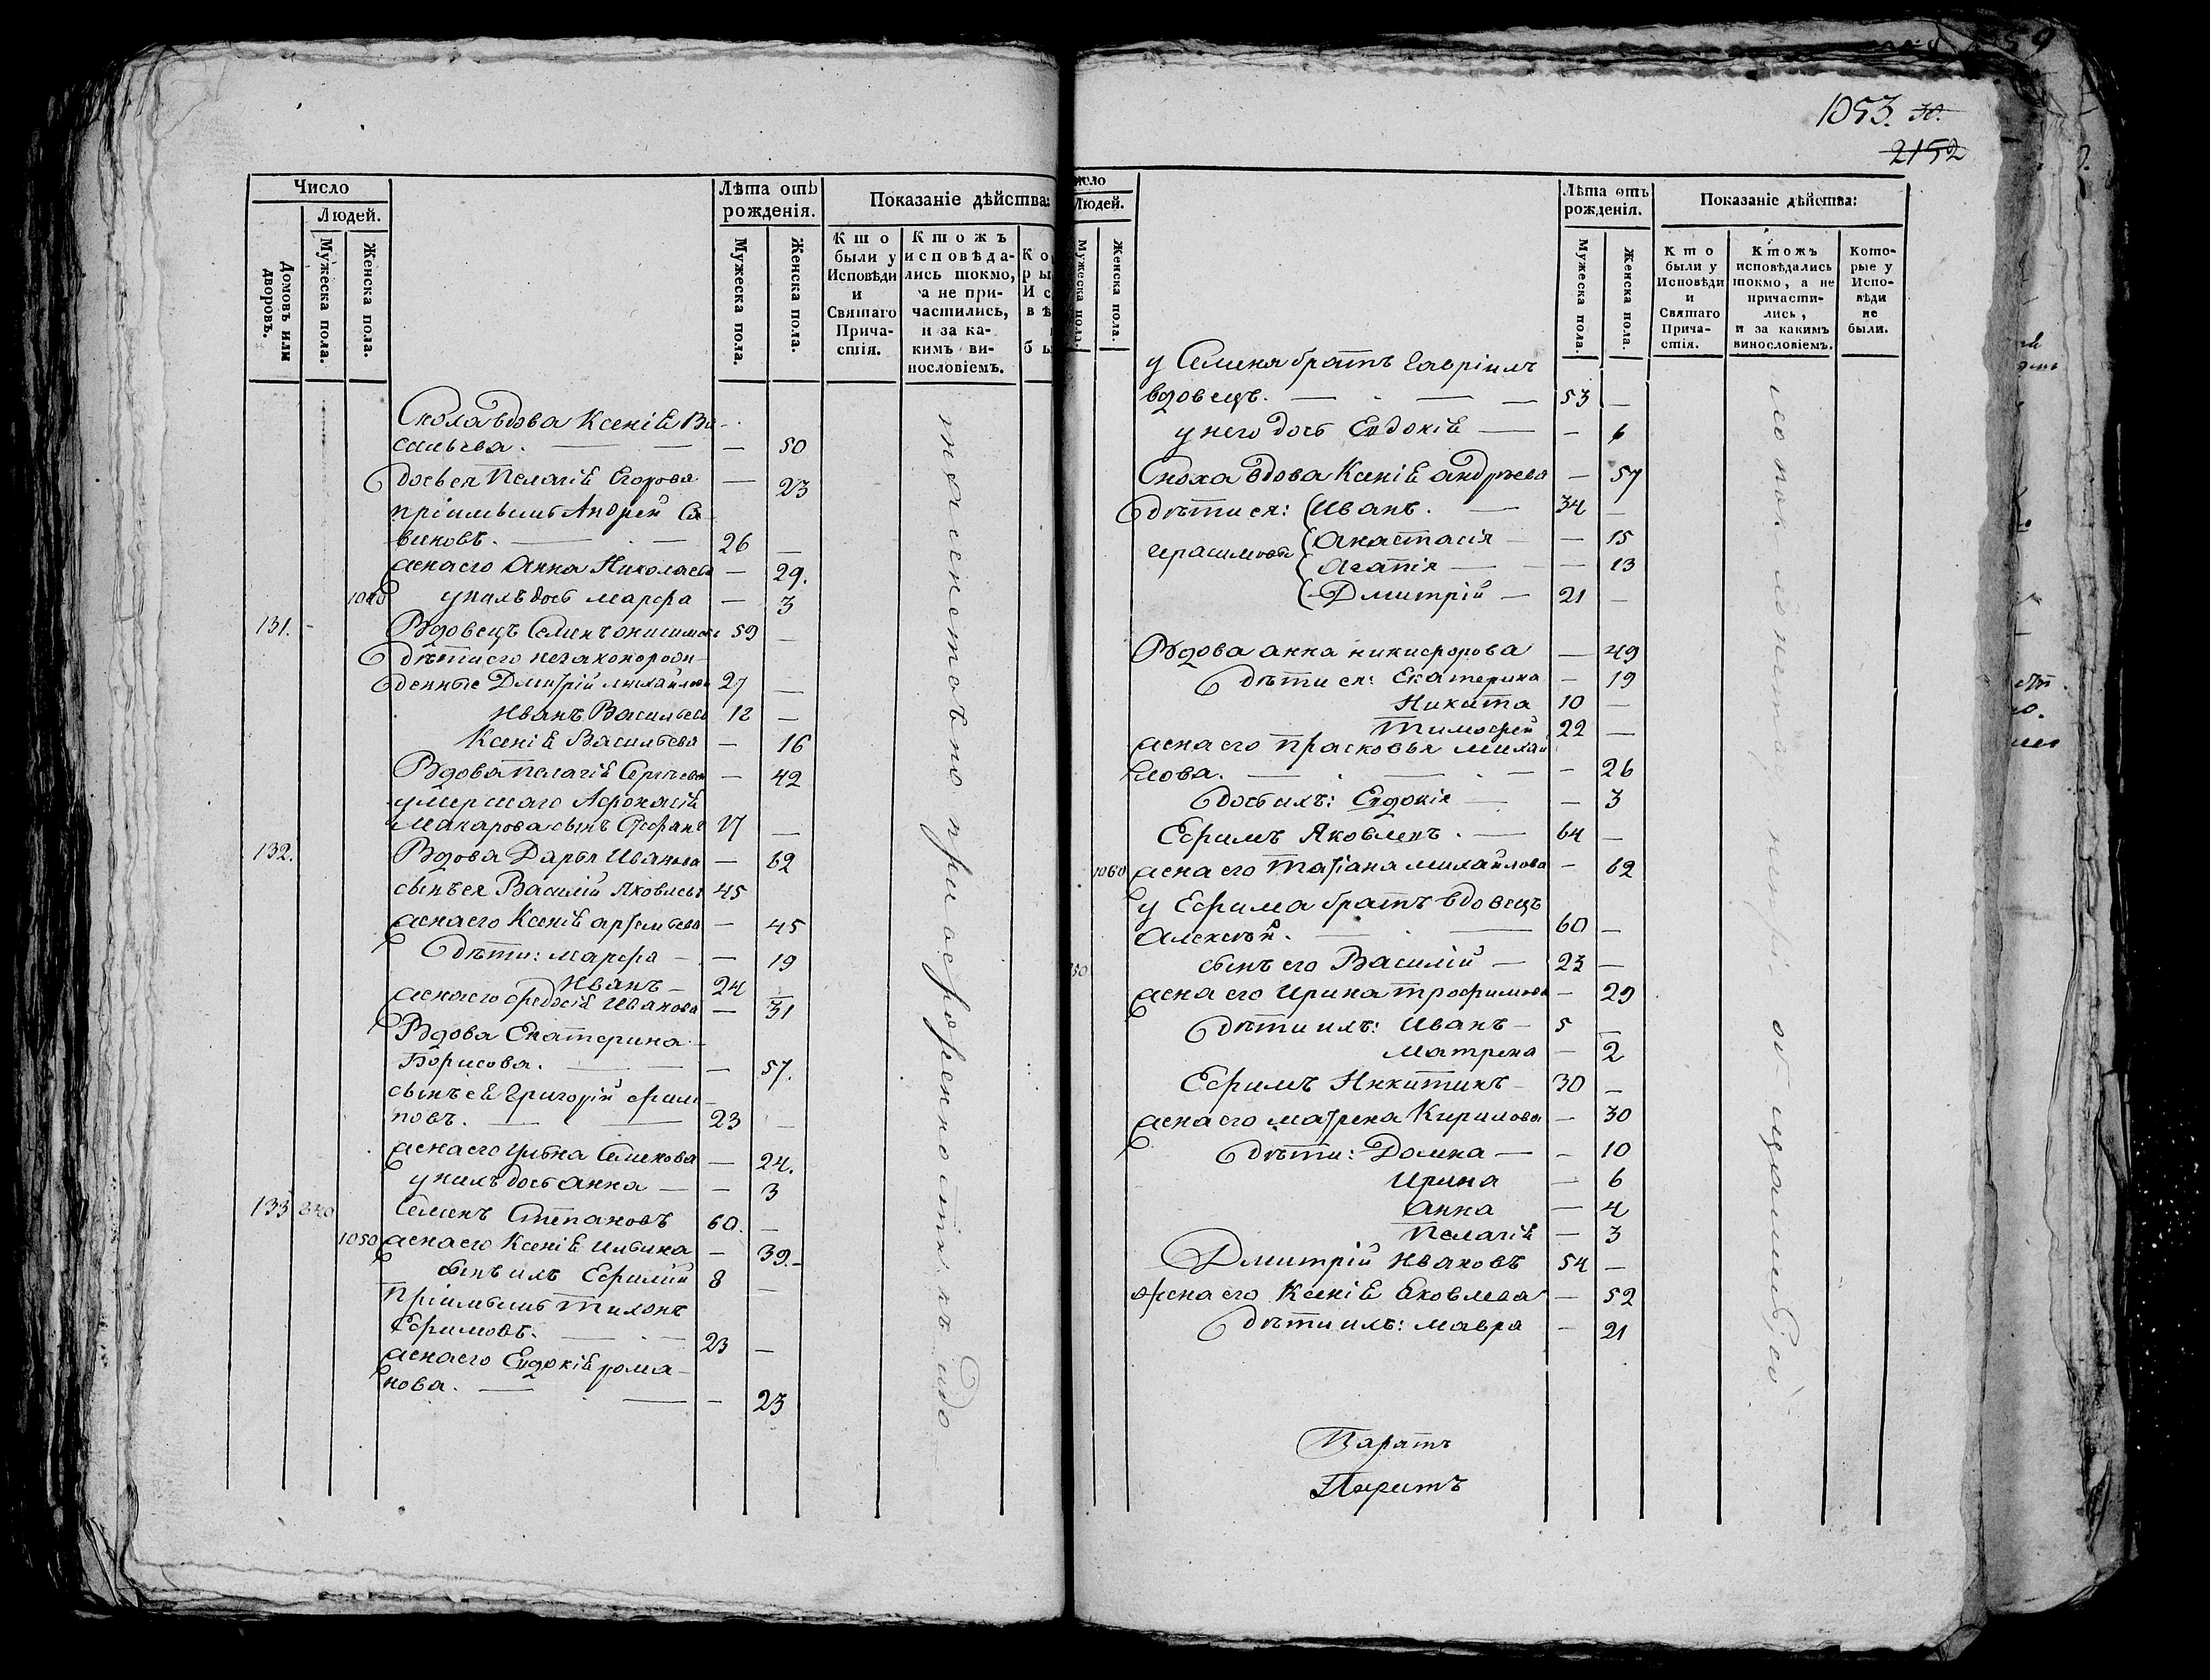 1053. 30.
2152
Число
Людей.
Домовъ или дворовъ.
Мужеска пола.
Женска пола.
Лѣта отъ рожденія.
Мужеска пола.
Женска пола.
Показаніе дѣйства:
Кто были у Исповѣди и Святаго Причастія.
Ктожъ исповѣдались токмо, а не причастились, и за какимъ винословіемъ.
вдова Ксеніѣ Ва-
сильева. — — 50
дочь ея Пелагіѣ Егорова — 23
пріимышъ Андрей Са-
виновъ. — 26 —
жена его Анна Николаева — 29.
1040 у нихъ дочь марѳа — 3
131. Вдовецъ Семенъ онисимовъ 59 —
дѣти его незаконорож-
денные Дмитрій михайловъ 27 —
Иванъ Васильевъ 12 —
Ксеніѣ Васильева — 16
Вдова пелагіѣ Сергѣева — 42
умершаго Афонасія
Макарова сынъ Стефанъ 17 —
132. Вдова Дарья Иванова — 62
сынъ ея Василій Яковлевъ 45
жена его Ксеніѣ артемьева — 45
дѣти: марѳа — — 19
Иванъ — 24 —
жена его федосіѣ Иванова — 31
Вдова Екатерина
Борисова. — — 57.
сынъ еѣ Григорій филип-
повъ. — 23 —
жена его Ульяна Семенова — 24.
у нихъ дочь анна — — 3
133 240 Семенъ Степановъ 60. —
1050 жена его Ксеніѣ ильина — 39. —
сынъ ихъ Ефимій 8 —
пріимышъ тихонъ
Ефимовъ. — 23 —
жена его Евдокіѣ рома-
нова. — — 23
Людей.
Мужеска пола.
Женска пола.
Лѣта отъ рожденія.
Мужеска пола.
Женска пола.
Показаніе дѣйства:
Кто были у Исповѣди и Святаго Причастія.
Ктожъ исповѣдались токмо, а не причастились, и за какимъ винословіемъ.
Которые у Исповѣди не были.
у Семена братъ гавріилъ
вдовецъ. — 53 —
у него дочь Евдокіѣ — — 6
Сноха вдова Ксеніѣ андреева — 57
дѣти ея: Иванъ. — 34 —
Герасимовы анастасія — — 15
агапія — — 13
Дмитрій — 21 —
Вдова анна никифорова — 49
дѣти ея: Екатерина — 19
Никита 10 —
Тимофей 22 —
жена его прасковья михай
лова. — — 26
дочь ихъ: Евдокія — — 3
Ефимъ Яковлевъ. — 64 —
1060 жена его Татіана михайлова — 62
у Ефима братъ вдовецъ
алексѣй. — 60 —
сынъ его Василій — 23 —
жена его ирина трофимова — 29
дѣти ихъ: Иванъ — 5 —
матрена — 2
Ефимъ Никитинъ — 30 —
жена его матрена Кирилова — 30
дѣти: Домна — — 10
Ирина — 6
анна — 4
Пелагіѣ — 3
Дмитрій Ивановъ 54 —
жена его Ксеніѣ Яковлева — 52
дѣти ихъ: мавра — 21